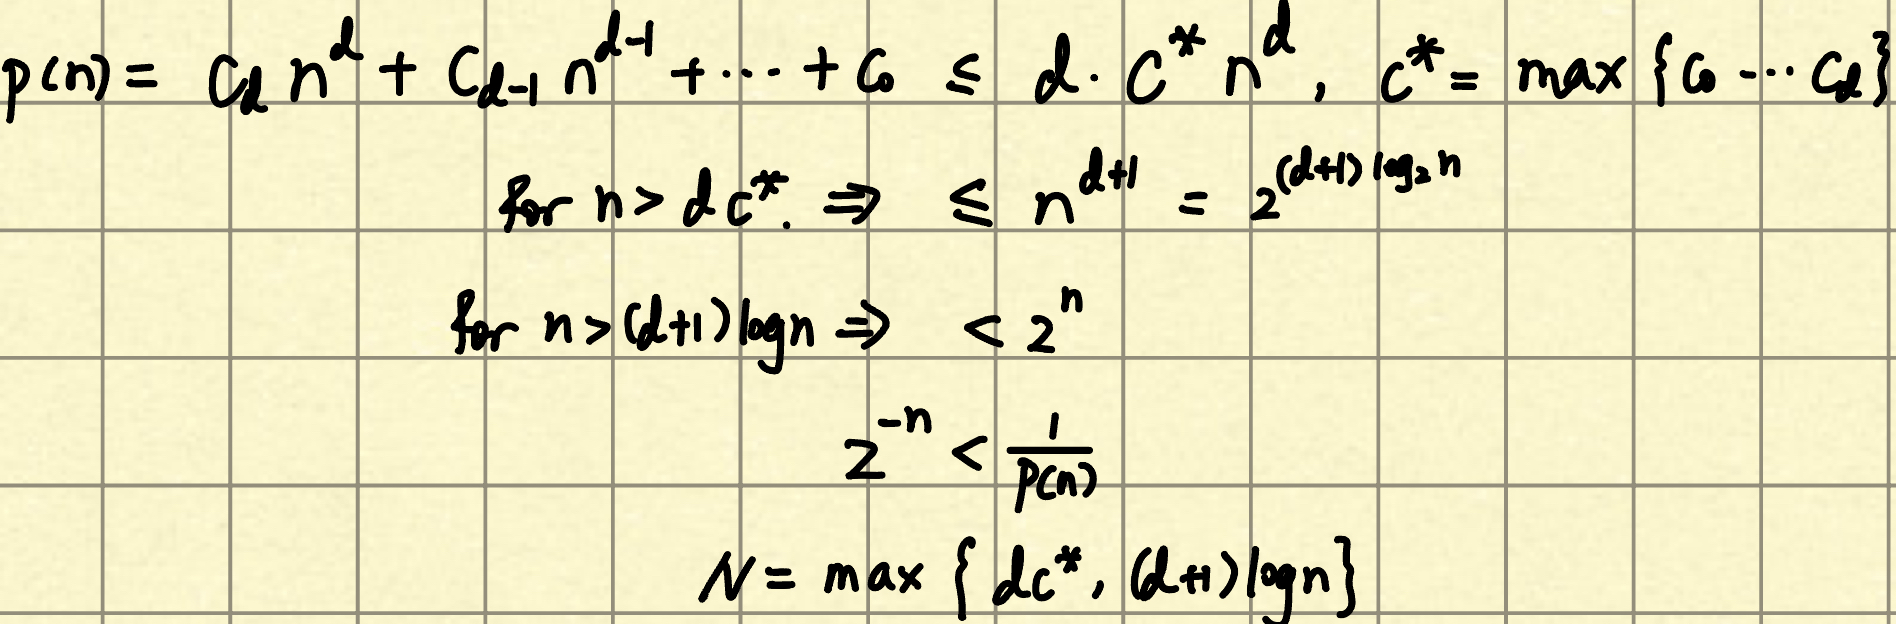 p(n) = C_d n^d + C_{d-1} n^{d-1} + ··· + C_0 ≤ d · C^* n^d , C^* = max {C_0 ··· C_d}
for n > d C^*. ⇒ ≤ n^{d+1} = 2^{(d+1) log_2 n}
for n > (d+1) log n ⇒ < 2^n
2^{-n} < 1/p(n)
N = max { dC^*, (d+1) log n}